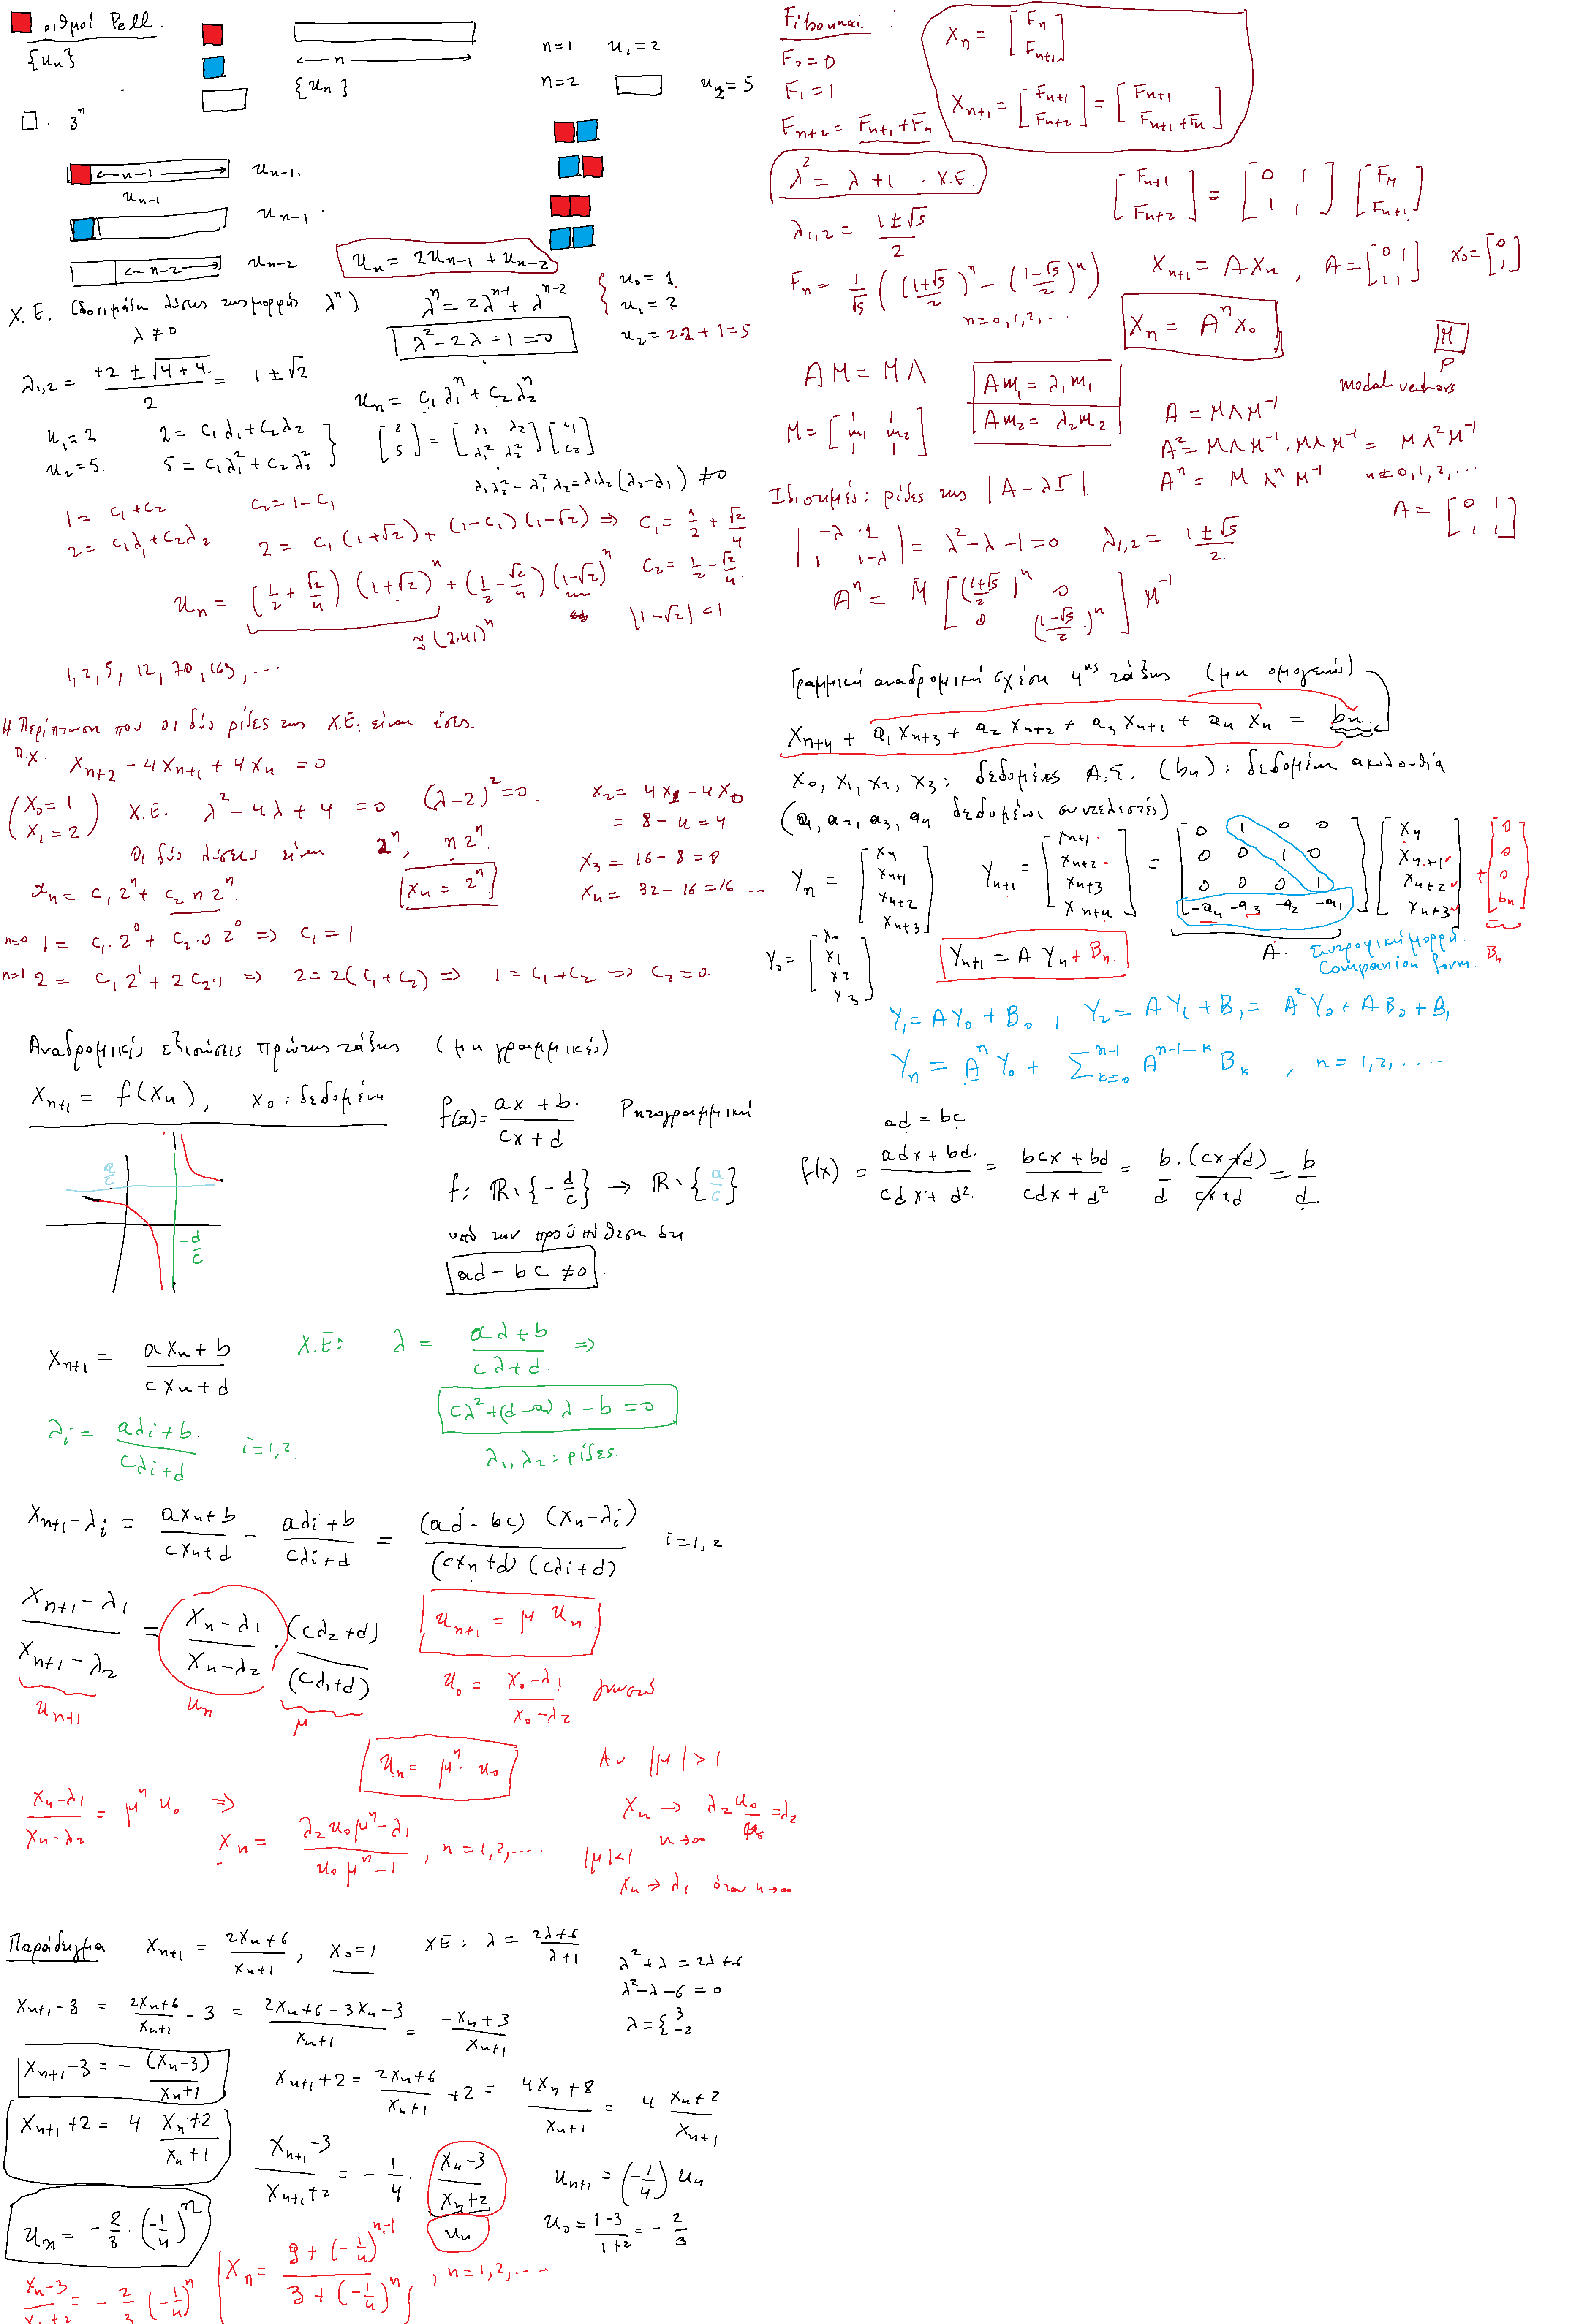 ριθμοί Pell
{u_n}
← n →
{u_n}
n=1 u_1=2
n=2 u_2=5
□. 3^n
← n-1 → u_{n-1}.
u_{n-1}
u_{n-1}.
← n-2 → u_{n-2}
u_n = 2u_{n-1} + u_{n-2}
Χ.Ε. (δοκιμάζω λύσεις της μορφής λ^n) λ^n = 2λ^{n-1} + λ^{n-2}
λ≠0
λ^2-2λ-1=0
{ u_0=1
u_1=2
u_2=2·2+1=5
λ_{1,2} = (+2±√(4+4))/2 = 1±√2
u_n = c_1λ_1^n + c_2λ_2^n
u_1=2 2=c_1λ_1+c_2λ_2
u_2=5. 5=c_1λ_1^2+c_2λ_2^2 }
[2; 5] = [λ_1 λ_2; λ_1^2 λ_2^2] [c_1; c_2]
λ_1λ_2^2 - λ_1^2λ_2 = λ_1λ_2(λ_2-λ_1) ≠0
1 = c_1+c_2 c_2=1-c_1
2 = c_1λ_1+c_2λ_2 2 = c_1(1+√2) + (1-c_1)(1-√2) ⇒ c_1 = 1/2 + √2/4
u_n = (1/2+√2/4)(1+√2)^n + (1/2-√2/4)(1-√2)^n c_2 = 1/2-√2/4
≈(2.41)^n |1-√2|<1
1, 2, 5, 12, 70, 163, ...
Η Περίπτωση που οι δύο ρίζες της Χ.Ε. είναι ίσες.
π.χ. x_{n+2} - 4x_{n+1} + 4x_n = 0
(x_0=1
x_1=2) Χ.Ε. λ^2-4λ+4 = 0 (λ-2)^2=0.
x_2= 4x_1-4x_0
= 8-4=4
Οι δύο λύσεις είναι 2^n, n2^n
x_3 = 16-8=8
x_n = c_1 2^n + c_2 n 2^n
x_n = 2^n
x_4 = 32-16=16 ...
n=0 1= c_1·2^0 + c_2·0 2^0 ⇒ c_1=1
n=1 2= c_1 2^1 + 2c_2·1 ⇒ 2=2(c_1+c_2) ⇒ 1=c_1+c_2 ⇒ c_2=0.
Αναδρομικές εξισώσεις πρώτης τάξης. (μη γραμμικές)
x_{n+1} = f(x_n), x_0: δεδομένη.
f(x)= (ax+b)/(cx+d) Ρητογραμμική.
a/c
-d/c
f: ℝ∖{-d/c} → ℝ∖{a/c}
υπό την προϋπόθεση ότι
ad-bc≠0
x_{n+1} = (ax_n+b)/(cx_n+d) Χ.Ε: λ = (aλ+b)/(cλ+d) ⇒
cλ^2+(d-a)λ-b=0
λ_i = (aλ_i+b)/(cλ_i+d) i=1,2
λ_1, λ_2: ρίζες.
x_{n+1}-λ_i = (ax_n+b)/(cx_n+d) - (aλ_i+b)/(cλ_i+d) = (ad-bc)(x_n-λ_i)/((cx_n+d)(cλ_i+d)) i=1,2
(x_{n+1}-λ_1)/(x_{n+1}-λ_2) = (x_n-λ_1)/(x_n-λ_2) · (cλ_2+d)/(cλ_1+d)
u_{n+1} u_n μ
u_{n+1} = μ u_n
u_0 = (x_0-λ_1)/(x_0-λ_2) γνωστό
u_n = μ^n·u_0
Αν |μ|>1
(x_n-λ_1)/(x_n-λ_2) = μ^n u_0 ⇒
x_n = (λ_2u_0μ^n-λ_1)/(u_0μ^n-1), n=1,2,....
x_n → λ_2u_0/u_0=λ_2
n→∞
|μ|<1
x_n → λ_1 όταν n→∞
Παράδειγμα. x_{n+1} = (2x_n+6)/(x_n+1), x_0=1 ΧΕ: λ = (2λ+6)/(λ+1)
λ^2+λ=2λ+6
λ^2-λ-6=0
λ={3
-2
x_{n+1}-3 = (2x_n+6)/(x_n+1) - 3 = (2x_n+6-3x_n-3)/(x_n+1) = (-x_n+3)/(x_n+1)
x_{n+1}-3 = -(x_n-3)/(x_n+1)
x_{n+1}+2 = (2x_n+6)/(x_n+1) +2 = (4x_n+8)/(x_n+1) = 4 (x_n+2)/(x_n+1)
x_{n+1}+2 = 4 (x_n+2)/(x_n+1)
(x_{n+1}-3)/(x_{n+1}+2) = -1/4 · (x_n-3)/(x_n+2)
u_n
u_{n+1} = (-1/4) u_n
u_n = -2/3·(-1/4)^n
u_0 = (1-3)/(1+2) = -2/3
(x_n-3)/(x_n+2) = -2/3 (-1/4)^n
x_n = (9+(-1/4)^{n-1})/(3+(-1/4)^n), n=1,2,...
Fibonacci
F_0=0
F_1=1
F_{n+2} = F_{n+1}+F_n
X_n = [F_n; F_{n+1}]
X_{n+1} = [F_{n+1}; F_{n+2}] = [F_{n+1}; F_{n+1}+F_n]
λ^2 = λ+1 . Χ.Ε.
[F_{n+1}; F_{n+2}] = [0 1; 1 1] [F_n; F_{n+1}]
λ_{1,2} = (1±√5)/2
F_n = 1/√5 ( ((1+√5)/2)^n - ((1-√5)/2)^n )
n=0,1,2,..
X_{n+1} = AX_n, A=[0 1; 1 1] X_0=[0; 1]
X_n = A^n X_0
M
P
modal vectors
AM = MΛ
Am_1=λ_1m_1
Am_2=λ_2m_2
M = [m_1 m_2]
A = MΛM^{-1}
A^2 = MΛM^{-1}·MΛM^{-1} = MΛ^2M^{-1}
A^n = MΛ^nM^{-1} n=0,1,2,...
Ιδιοτιμές: ρίζες της |A-λI|
A = [0 1; 1 1]
|-λ 1; 1 1-λ| = λ^2-λ-1=0 λ_{1,2} = (1±√5)/2
A^n = M [((1+√5)/2)^n 0; 0 ((1-√5)/2)^n] M^{-1}
Γραμμική αναδρομική σχέση 4ης τάξης (μη ομογενής)
x_{n+4} + a_1x_{n+3} + a_2x_{n+2} + a_3x_{n+1} + a_4x_n = b_n.
x_0, x_1, x_2, x_3: δεδομένες Α.Σ. (b_n): δεδομένη ακολουθία
(a_1, a_2, a_3, a_4 δεδομένοι συντελεστές)
Y_n = [x_n; x_{n+1}; x_{n+2}; x_{n+3}] Y_{n+1} = [x_{n+1}; x_{n+2}; x_{n+3}; x_{n+4}] = [0 1 0 0; 0 0 1 0; 0 0 0 1; -a_4 -a_3 -a_2 -a_1] [x_n; x_{n+1}; x_{n+2}; x_{n+3}] + [0; 0; 0; b_n]
Y_0 = [x_0; x_1; x_2; x_3]
Y_{n+1} = A Y_n + B_n.
A. Συντροφική μορφή.
Companion form. B_n
Y_1 = AY_0 + B_0, Y_2 = AY_1 + B_1 = A^2Y_0 + AB_0 + B_1
Y_n = A^n Y_0 + Σ_{k=0}^{n-1} A^{n-1-k} B_k, n=1,2,....
ad = bc.
f(x) = (adx+bd)/(cdx+d^2) = (bcx+bd)/(cdx+d^2) = b/d·(cx+d)/(cx+d) = b/d